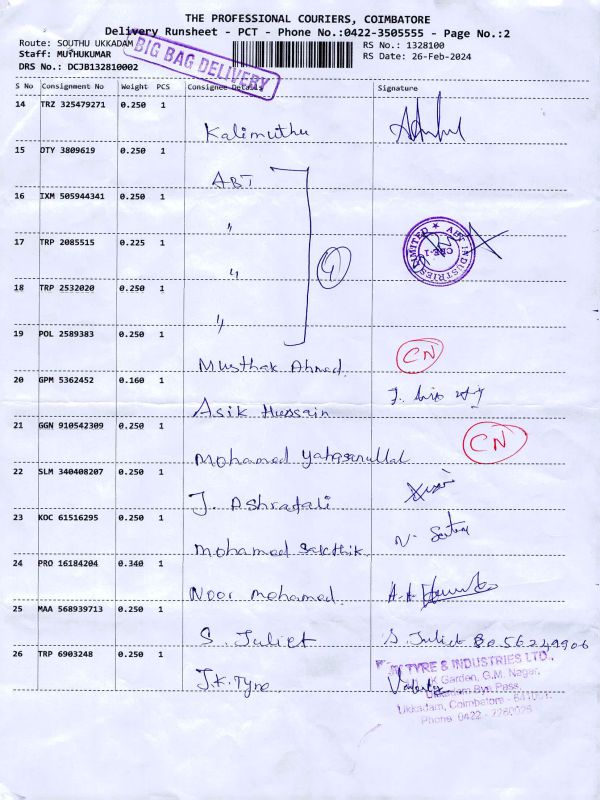 THE PROFESSIONAL COURIERS, COIMBATORE
Delivery Runsheet - PCT - Phone No.:0422-3505555 - Page No.:2
Route: SOUTHU UKKADAM
RS No.: 1328100
Staff: MUTHUKUMAR
RS Date: 26-Feb-2024
DRS No.: DCJB132810002
BIG BAG DELIVERY
S No Consignment No Weight PCS Consignee Details Signature
14 TRZ 325479271 0.250 1
Kalimuthu
15 DTY 3809619 0.250 1
ABT
16 IXM 505944341 0.250 1
"
17 TRP 2085515 0.225 1
" 4
INDUSTRIES LIMITED
CBE-1
18 TRP 2532020 0.250 1
"
19 POL 2589383 0.250 1
Musthak Ahmed. CN
20 GPM 5362452 0.160 1
Asik Hussain
21 GGN 910542309 0.250 1
Mohamed CN
22 SLM 340408207 0.250 1
J. Ashrafali
23 KOC 61516295 0.250 1
Mohamed
24 PRO 16184204 0.340 1
Noor mohamed.
25 MAA 568939713 0.250 1
S. Juliet S. Juliet 8056249906
26 TRP 6903248 0.250 1
J.K. Tyre
TYRE & INDUSTRIES LTD.,
Garden, G.M. Nagar,
Bye Pass,
Ukkadam, Coimbatore
Phone: 0422 -